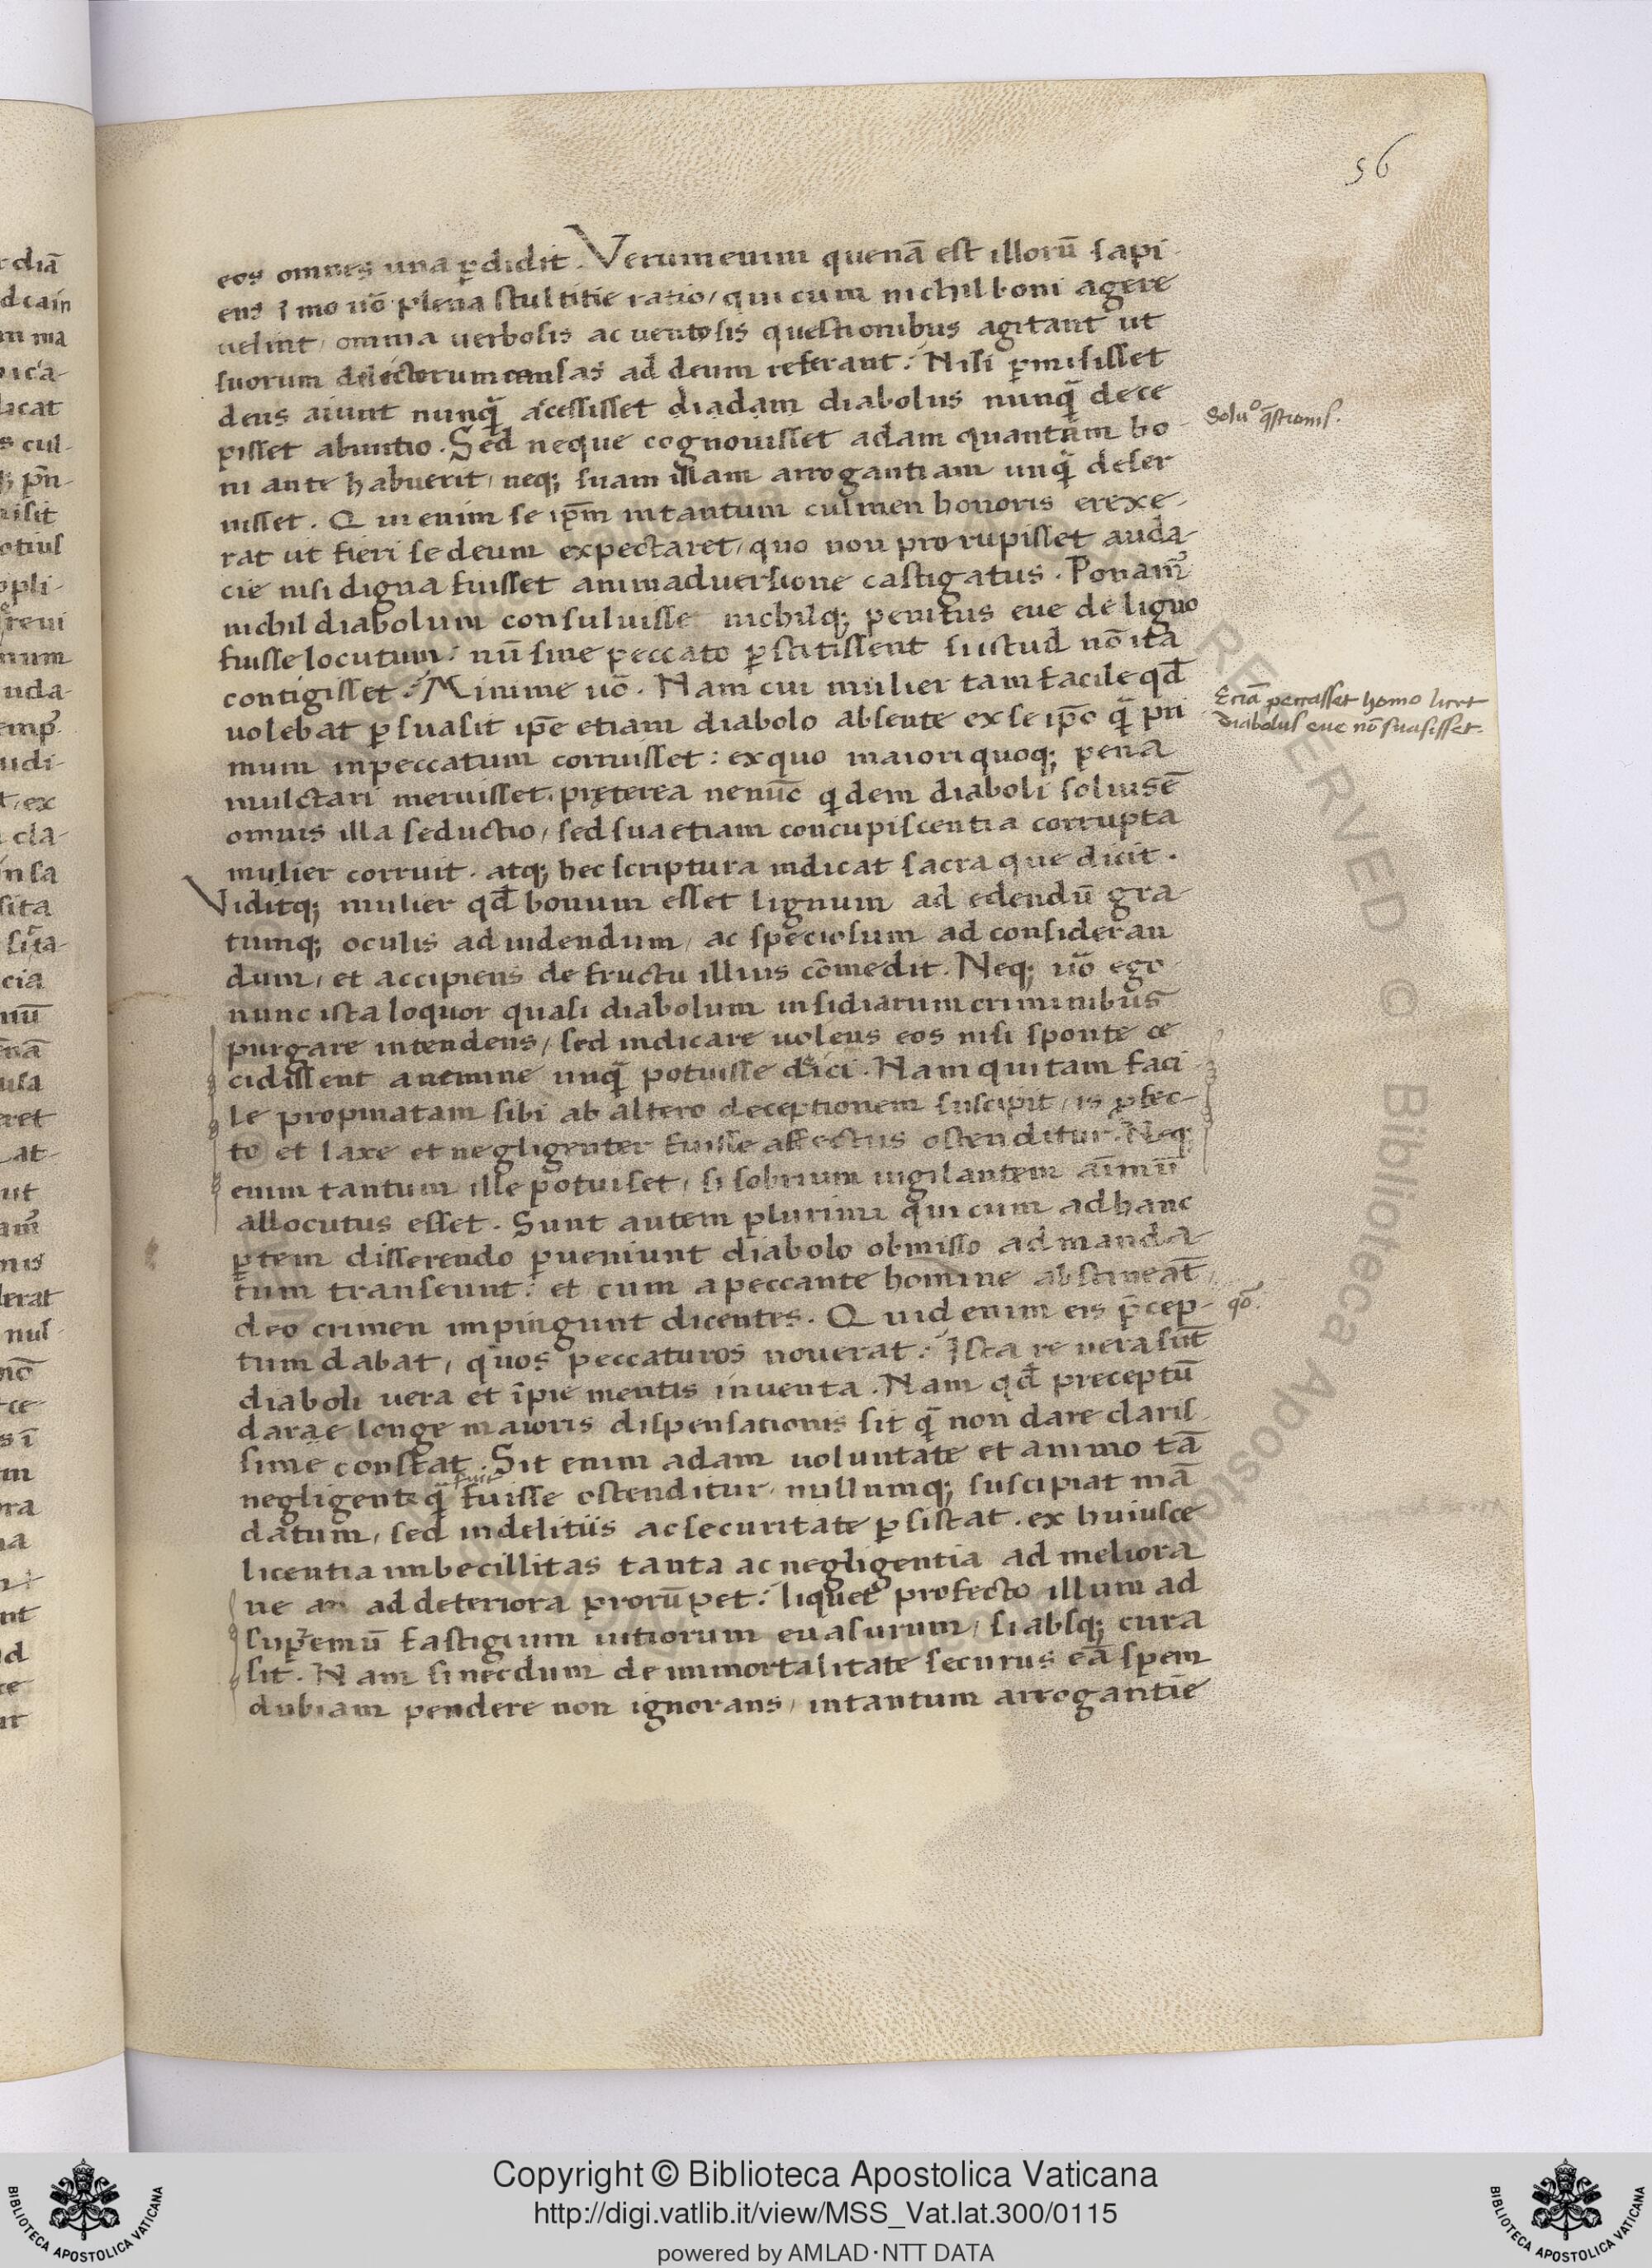 56
eos omnes una ꝑdidit. Verumenim quenā est illorū sapi
ens imo uō plena stultitie ratio, qui cum nichil boni agere
uelint, omnia uerbosis ac uentosis questionibus agitant ut
suorum delictorum causas ad deum referant: Nisi ꝑmisisset
deus aiunt nunqꝫ accessisset ad adam diabolus nunqꝫ dece
pisset ab initio. Sed neque cognouisset adam quantum bo
ni ante habuerit, neqꝫ suam illam arrogantiam unqꝫ deser
uisset. Qui enim se ip̄m in tantum culmen honoris erexe-
rat ut fieri se deum expectaret, quo non prorupisset auda-
cie nisi digna fuisset animaduersione castigatus. Ponam᷒
nichil diabolum consuluisse nichilqꝫ penitus eue de ligno
fuisse locutum: nū sine peccato ꝑstitissent si istud nō ita
contigisset: Minime uō. Nam cui mulier tam facile qd̄
uolebat ꝑsuasit ip̄e etiam diabolo absente ex se ip̄o qꝫ pri
mum in peccatum corruisset: ex quo maiori quoqꝫ pena
mulctari meruisset. pręterea ne nūc qidem diaboli solius ē
omnis illa seductio, sed sua etiam concupiscentia corrupta
mulier corruit. atqꝫ hec scriptura indicat sacra que dicit.
Viditqꝫ mulier qd̄ bonum esset lignum ad edendū gra-
tumqꝫ oculis ad uidendum, ac speciosum ad consideran
dum, et accipiens de fructu illius cōmedit. Neqꝫ uō ego
nunc ista loquor quasi diabolum insidiarum criminibus
purgare intendens, sed indicare uolens eos nisi sponte ce
cidissent a nemine unqꝫ potuisse deici. Nam qui tam faci
le propinatam sibi ab altero deceptionem suscipit, is ꝓfec-
to et laxe et negligenter fuisse affectus ostenditur. Neqꝫ
enim tantum ille potuiset, si sobrium uigilantem aīmū
allocutus esset. Sunt autem plurimi qui cum ad hanc
ꝑtem disserendo ꝑueniunt diabolo obmisso ad manda-
tum transeunt: et cum a peccante homine abstineāt,
deo crimen impingunt dicentes. Quid enim eis p̄cep-
tum dabat, quos peccaturos nouerat: Ista re uera sūt
diaboli uera et īpie mentis inuenta. Nam qd̄ preceptū
darae longe maioris dispensationis sit qꝫ non dare claris
sime constat. Sit enim adam uoluntate et animo tā
negligente qꝫ fuisse ostenditur, nullumqꝫ suscipiat mā
datum, sed in delitiis ac securitate ꝑsistat. ex huiusce
licentia imbecillitas tanta ac negligentia ad meliora
ne an ad deteriora prorūpet: liquet profecto illum ad
supremū fastigium uitiorum euasurum, si absqꝫ cura
sit. Nam si necdum de immortalitate securus eā spem
dubiam pendere non ignorans, in tantum arrogantie
Soluᵒ qstionis.
Etiā peccasset homo licet
diabolus eue nō suasisset.
qō.
Copyright © Biblioteca Apostolica Vaticana
http://digi.vatlib.it/view/MSS_Vat.lat.300/0115
powered by AMLAD·NTT DATA
BIBLIOTECA APOSTOLICA VATICANA
BIBLIOTECA APOSTOLICA VATICANA